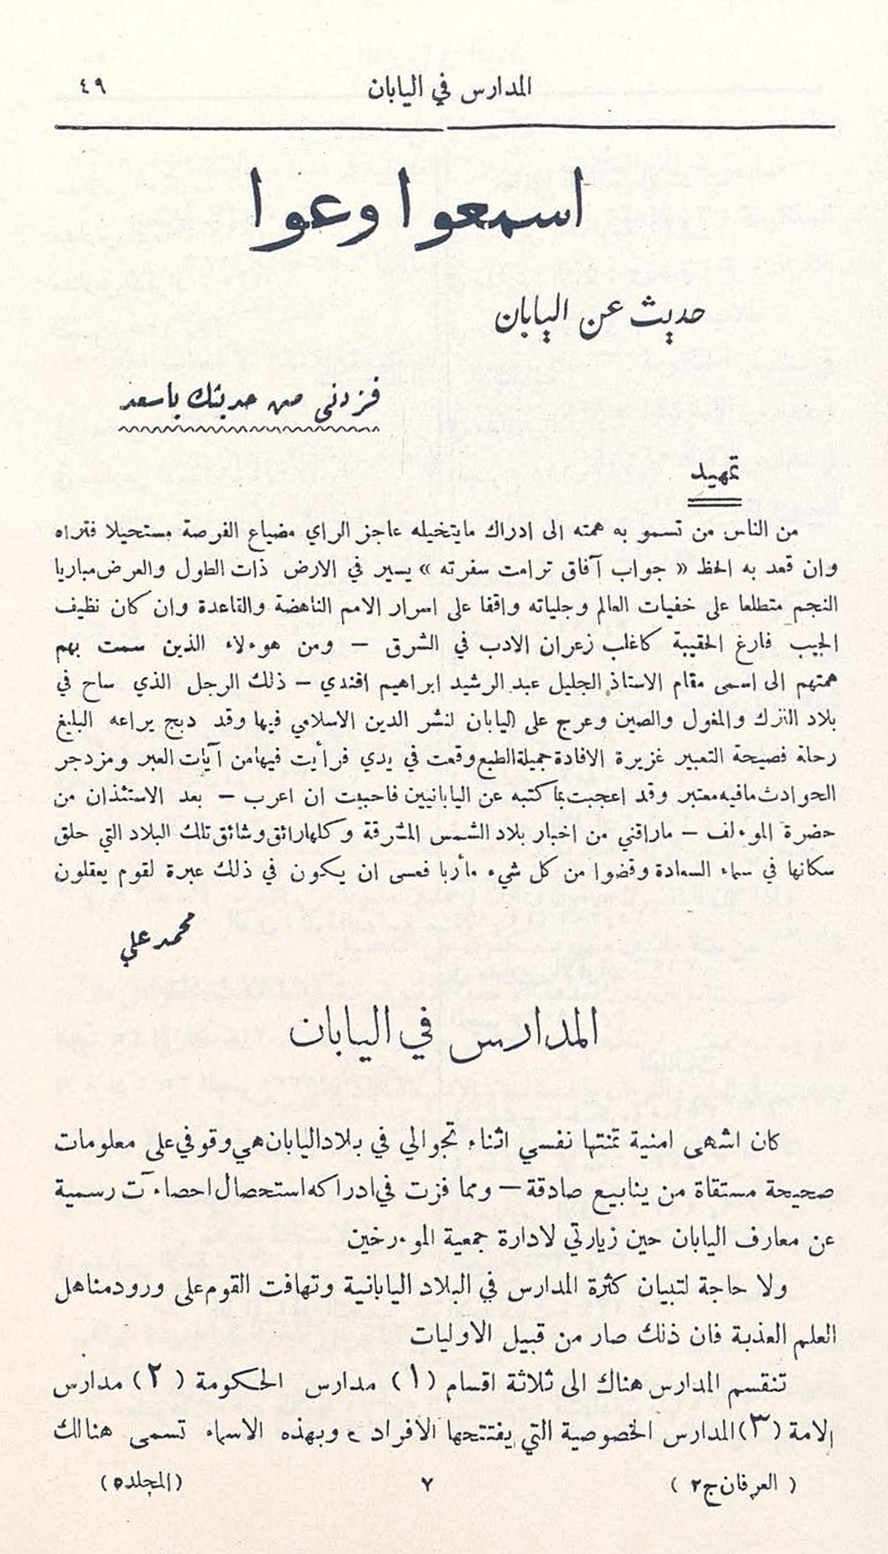 المدارس في اليابان ٤٩
اسمعوا وعوا
حديث عن اليابان
فزدني من حديثك ياسعد
تمهيد
من الناس من تسمو به همته الى ادراك مايتخيله عاجز الراي مضياع الفرصة مستحيلا فتراه
وان قعد به الحظ « جواب آفاق ترامت سفرته » يسير في الارض ذات الطول والعرض مباريا
النجم متطلعا على خفيات العالم وجلياته واقفا على اسرار الامم الناهضة والقاعدة وان كان نظيف
الجيب فارغ الحقيبة كاغلب زعران الادب في الشرق – ومن هوءلاء الذين سمت بهم
همتهم الى اسمى مقام الاستاذ الجليل عبد الرشيد ابراهيم افندي – ذلك الرجل الذي ساح في
بلاد الترك والمغول والصين وعرج على اليابان لنشر الدين الاسلامي فيها وقد دبج يراعه البليغ
رحلة فصيحة التعبير غزيرة الافادة جميلة الطبع وقعت في يدي فرأيت فيها من آيات العبر ومزدجر
الحوادث مافيه معتبر وقد اعجبت بما كتبه عن اليابانيين فاحببت ان اعرب – بعد الاستئذان من
حضرة الموءلف – ماراقني من اخبار بلاد الشمس المشرقة وكلها رائق وشائق تلك البلاد التي حلق
سكانها في سماء السعادة وقضوا من كل شيء مأربا فعسى ان يكون في ذلك عبرة لقوم يعقلون
محمد علي
المدارس في اليابان
كان اشهى امنية تمنتها نفسي اثناء تجوالي في بلاد اليابان هي وقوفي على معلومات
صحيحة مستقاة من ينابيع صادقة – ومما فزت في ادراكه استحصال احصاءآت رسمية
عن معارف اليابان حين زيارتي لادارة جمعية الموءرخين
ولا حاجة لتبيان كثرة المدارس في البلاد اليابانية وتهافت القوم على ورود مناهل
العلم العذبة فان ذلك صار من قبيل الاوليات
تنقسم المدارس هناك الى ثلاثة اقسام (١) مدارس الحكومة (٢) مدارس
الامة (٣) المدارس الخصوصية التي يفتتحها الافراد ، وبهذه الاسماء تسمى هنالك
( العرفان ج ٢ ) ٧ (المجلد ٥)